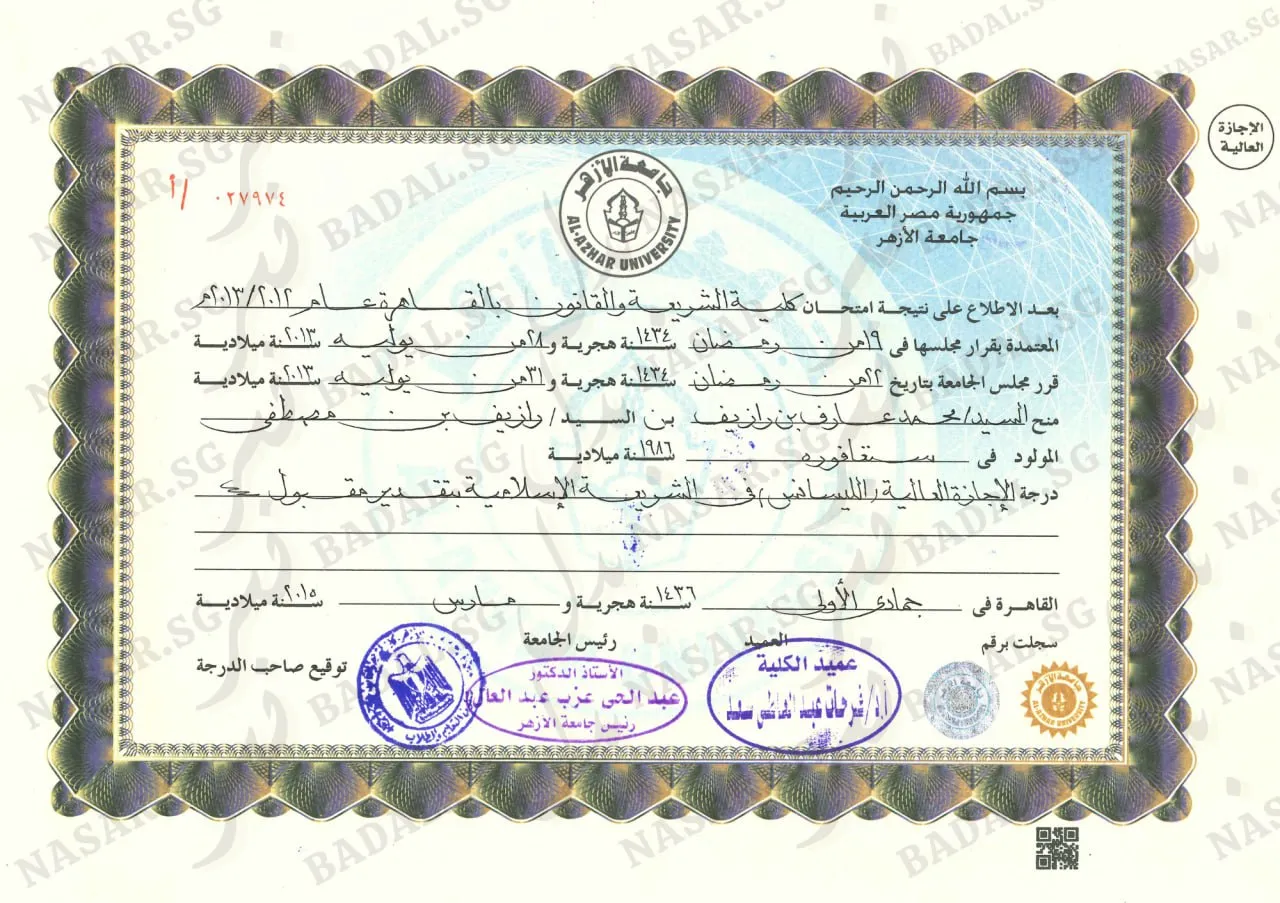 الإجازة
العالية
بسم الله الرحمن الرحيم
جمهورية مصر العربية
جامعة الأزهر
جامعة الأزهر
AL-AZHAR UNIVERSITY
أ/ ٠٢٧٩٧٤
بعد الاطلاع على نتيجة امتحان كلية الشريعة والقانون بالقاهرة عام ٢٠١٣/٢٠١٢م
المعتمدة بقرار مجلسها فى ١٩ من رمضان سنة ١٤٣٤ هجرية و ٢٨ من يوليه سنة ٢٠١٣ ميلادية
قرر مجلس الجامعة بتاريخ ٢٢ من رمضان سنة ١٤٣٤ هجرية و ٣١ من يوليه سنة ٢٠١٣ ميلادية
منح السيد/ محمد عارف بن رازيف بن السيد/ رازيف بن مصطفى
المولود فى سنغافوره سنة ١٩٨٦ ميلادية
درجة الإجازة العالية (الليسانس) فى الشريعة الإسلامية بتقدير مقبول
القاهرة فى جمادى الأولى سنة ١٤٣٦ هجرية و مارس سنة ٢٠١٥ ميلادية
سجلت برقم
العميد
رئيس الجامعة
توقيع صاحب الدرجة
عميد الكلية
أ.د/ فرحات عبد العاطى سعد
الأستاذ الدكتور
عبد الحى عزب عبد العال
رئيس جامعة الازهر
جامعة الأزهر
AL-AZHAR UNIVERSITY
NASAR.SG
BADAL.SG